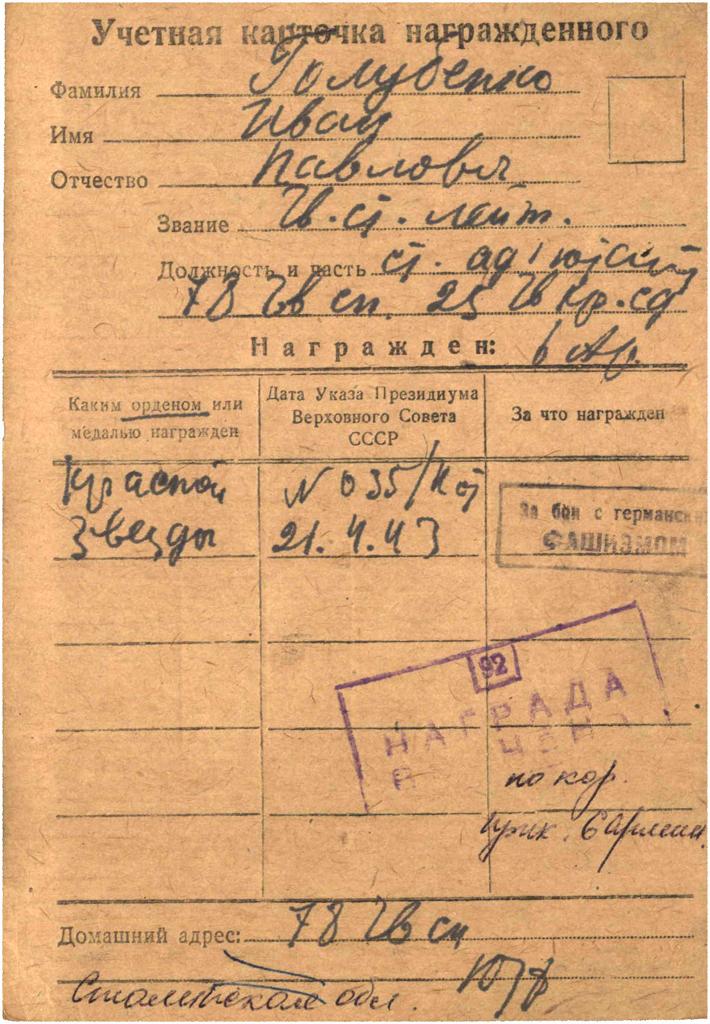 Учетная карточка награжденного
Фамилия Голубенко
Имя Иван
Отчество Павлович
Звание Гв. ст. лейт.
Должность и часть ст. ад'ютант
78 Гв сп. 25 Гв Кр. сд
Награжден: 6 Ар.
Каким орденом или медалью награжден
Дата Указа Президиума Верховного Совета СССР
За что награжден
Красной Звезды
N 035/Н от 21.4.43
За бои с германским
ФАШИЗМОМ
92
НАГРАДА
по кор.
6 Армии.
Домашний адрес: 78 Гв сп
ЮЗФ
обл.